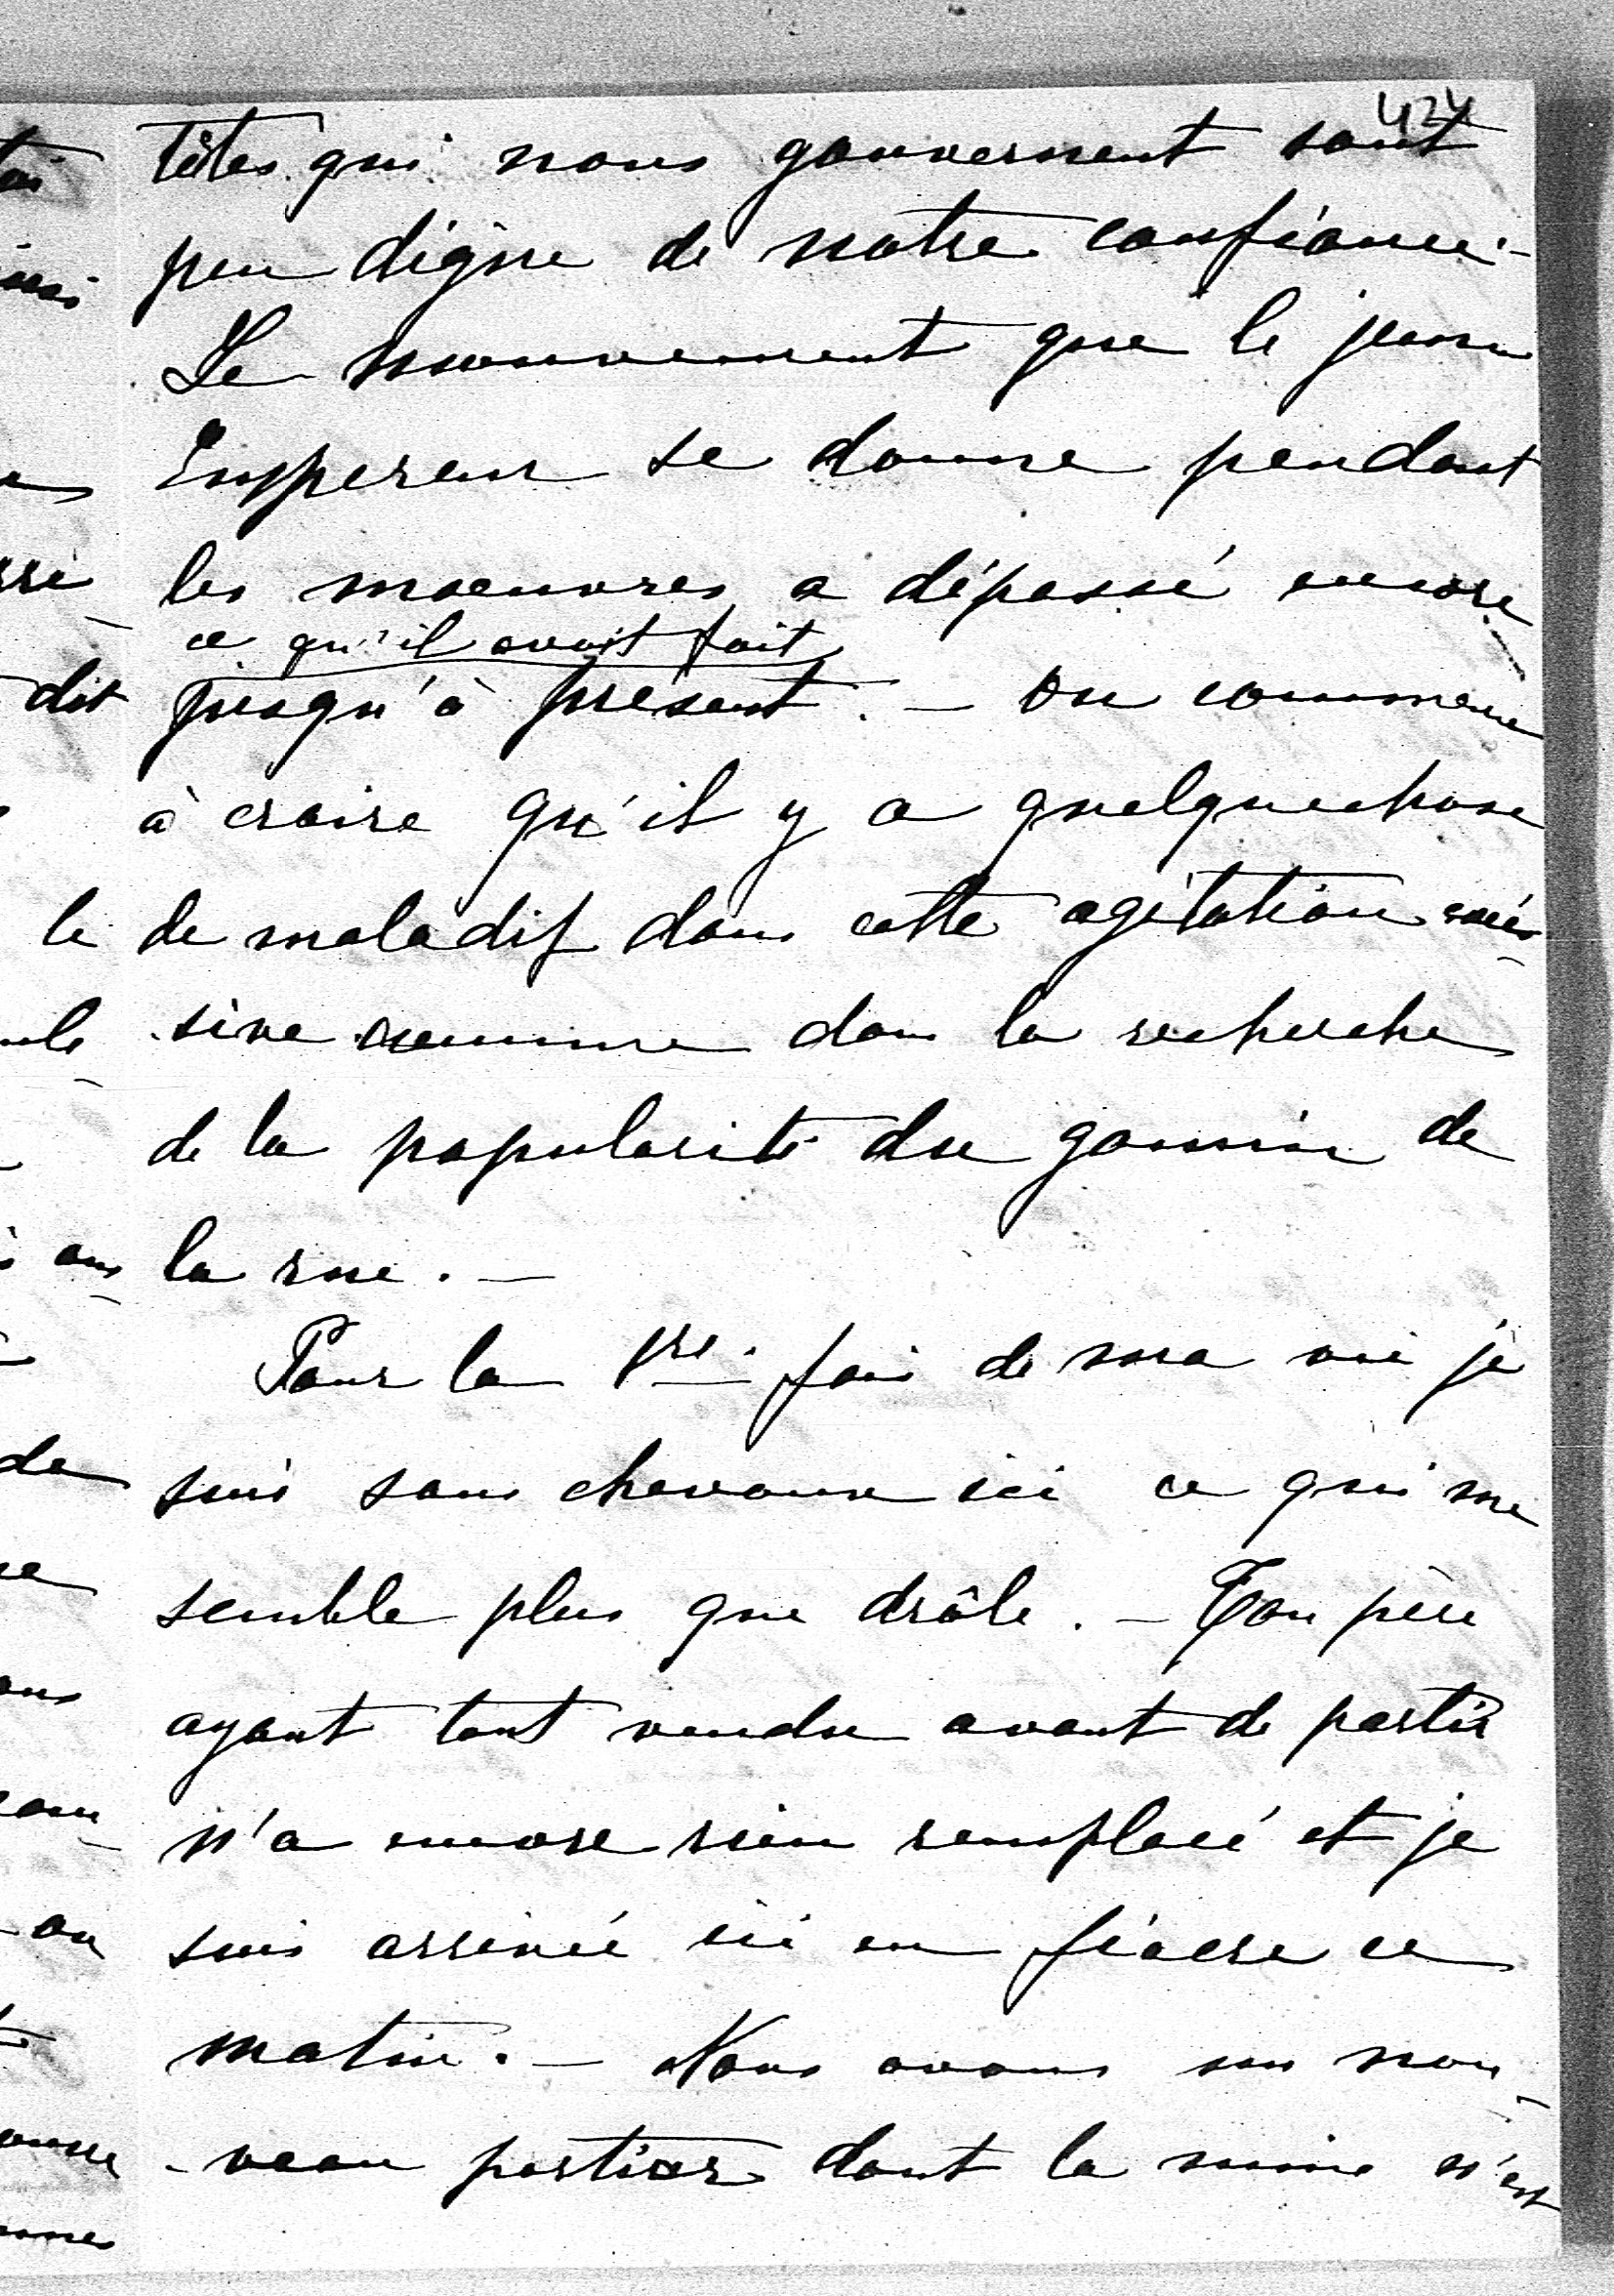 424
têtes qui nous gouvernent sont
peu digne de notre confiance. -
Le mouvement que le jeune
Empereur se donne pendant
les manœuvres a dépassé encore
ce qu'il avait fait
jusqu'à présent. - On commence
à croire qu'il y a quelquechose
de maladif dans cette agitation
sive comme dans la recherche
de la popularité du gamin de
la rue. -
Pour la 1re. fois de ma vie je
suis sans chevaux ici ce qui me
semble plus que drôle. - Ton père
ayant tout vendu avant de partir
n'a encore rien remplacé et je
suis arrivée ici en fiacre ce
matin. - Nous avons un nou-
-veau portier dont la mine n'est